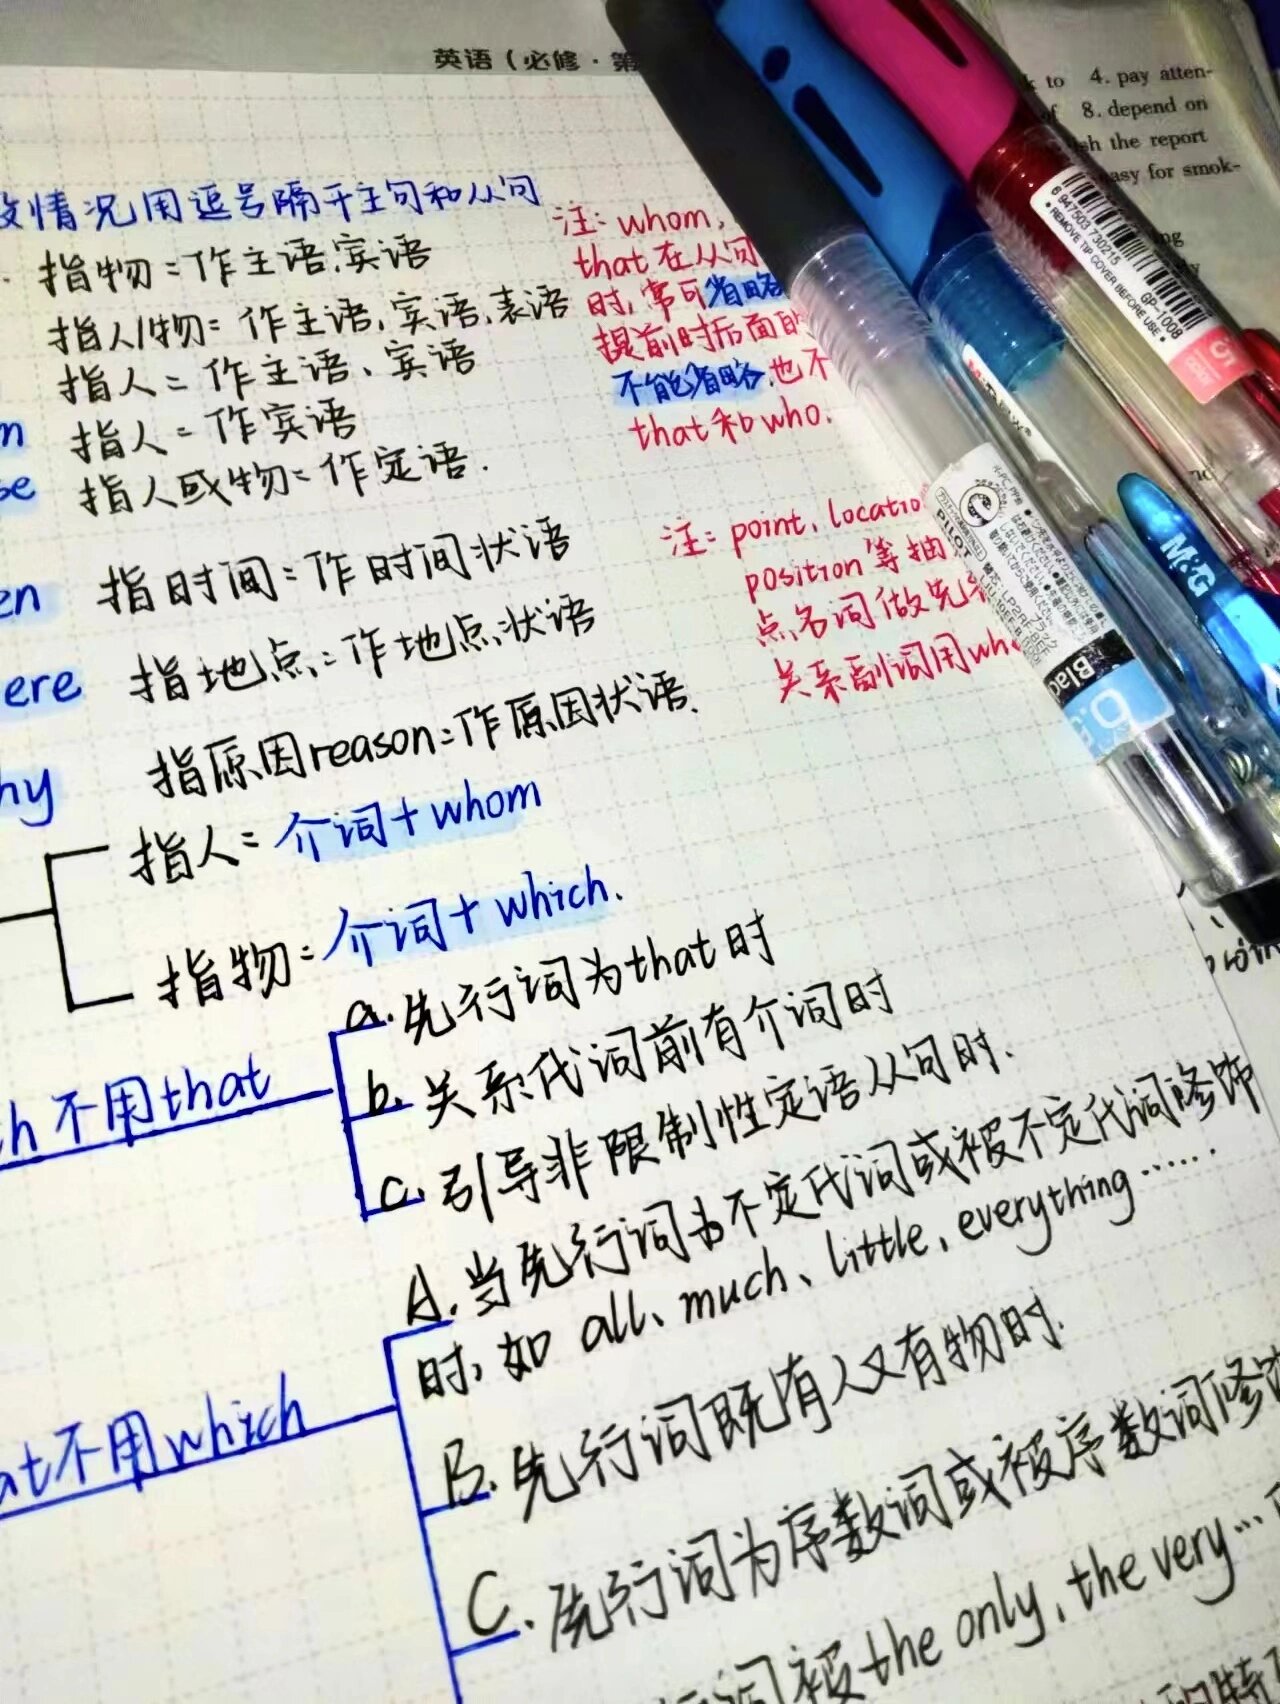 英语（必修·第
k to 4. pay atten-
of 8. depend on
sh the report
easy for smok-
情况用逗号隔开主句和从句
指物=作主语、宾语
指人/物=作主语、宾语、表语
指人=作主语、宾语
m 指人=作宾语
se 指人或物=作定语.
en 指时间=作时间状语
ere 指地点=作地点状语
hy 指原因reason=作原因状语.
指人=介词+whom
指物=介词+which.
注: whom,
that在从句
时,常可省略
提前时后面的
不能省略,也不
that和who.
注: point, locatio
position等抽
点名词做先行
关系副词用whe
h不用that
a. 先行词为that时
b. 关系代词前有介词时
c. 引导非限制性定语从句时.
at不用which
A. 当先行词为不定代词或被不定代词修饰
时,如all、much、little、everything……
B. 先行词既有人又有物时.
C. 先行词为序数词或被序数词修饰
词被the only, the very…
6947503 730215
• REMOVE TIP COVER BEFORE USE •
GP-1008
M&G
PILOT
Blac
0.5